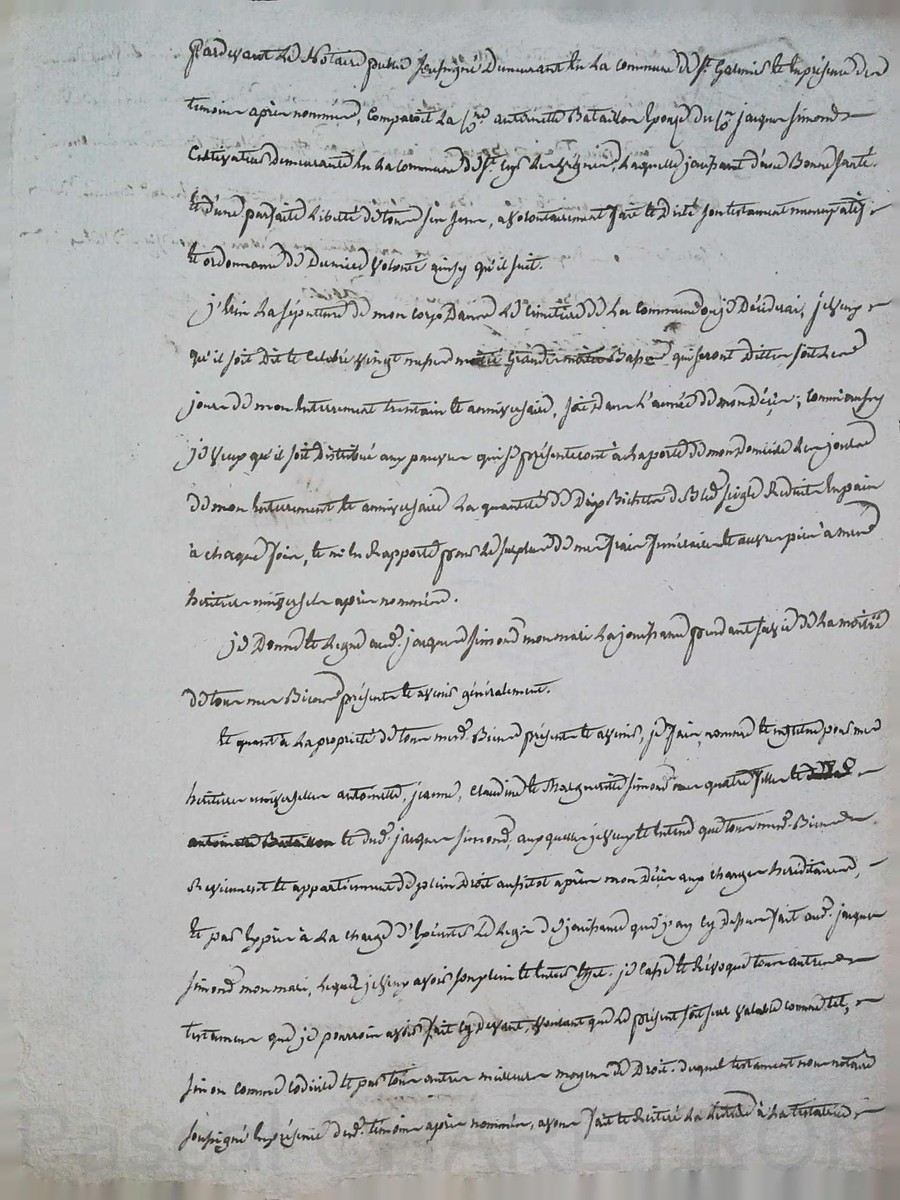 Pardevant Le Notaire public soussigné Demeurant En La commune de St. Galmier et En présence des
temoins après nommés, Comparoit La Cnne antoinette Bataillon Epouse du Cn jacques simond
Cultivateur demeurante En La Commune de St. Cyr Les Vignes, Laquelle jouissant d'une Bonne santé
Et d'une parfaite Liberté de tous ses sens, a volontairement fait et Dicté son testament nuncupatif
Et ordonnance de Derniere volonté ainsy qu'il suit.
j'Elis La sépulture de mon corps Dans Le Cimetière de La Commune ou je Décéderai, je veux
qu'il soit Dit et Celebré vingt messes Basses qui seront Dittes soit Les
jours de mon Enterrement trentain et anniversaire, soit dans L'année de mon Décès; Comme aussy
je veux qu'il soit Distribué aux pauvres qui se présenteront à La porte de mon Domicile Les jours
de mon Enterrement et anniversaire La quantité de Dix Bichets de Bled seigle Reduits En pain
à chaque fois, et m'En Rapporte pour Le surplus de mes frais funéraires et œuvres pies à mes
heritiers universels après nommés.
je Donne et Legue aud. jacques simond mon mari La jouissance pendant sa vie de La moitié
de tous mes Biens présents et avenir généralement.
Et quant à La propriété de tous mesd. Biens présents et avenir, je fais, nomme et institue pour mes
heritieres universelles antoinette, jeanne, Claudine et Marguerite simond mes quatre filles et
antoinette Bataillon et dud. jacques simond, auxquelles je veux et Entend que tous mesd. Biens
Reviennent et appartiennent de plein Droit aussitot après mon Décès aux charges hereditaires,
Et par Exprès à La charge d'Exécuter Le Legs de jouissance que j'ay Cy dessus fait aud. jacques
simond mon mari, Lequel je veux avoir son plein et Entier Effet. je Casse et Révoque tous autres
testamens que je pourrois avoir fait Cy devant, voulant que Le présent soit seul valable comme tel,
sinon comme Codicile et par tous autres meilleurs moyens de Droit. duquel testament nous notaire
soussigné En présence desd. temoins après nommés, avons fait et Réitéré La Lecture à La testatrice